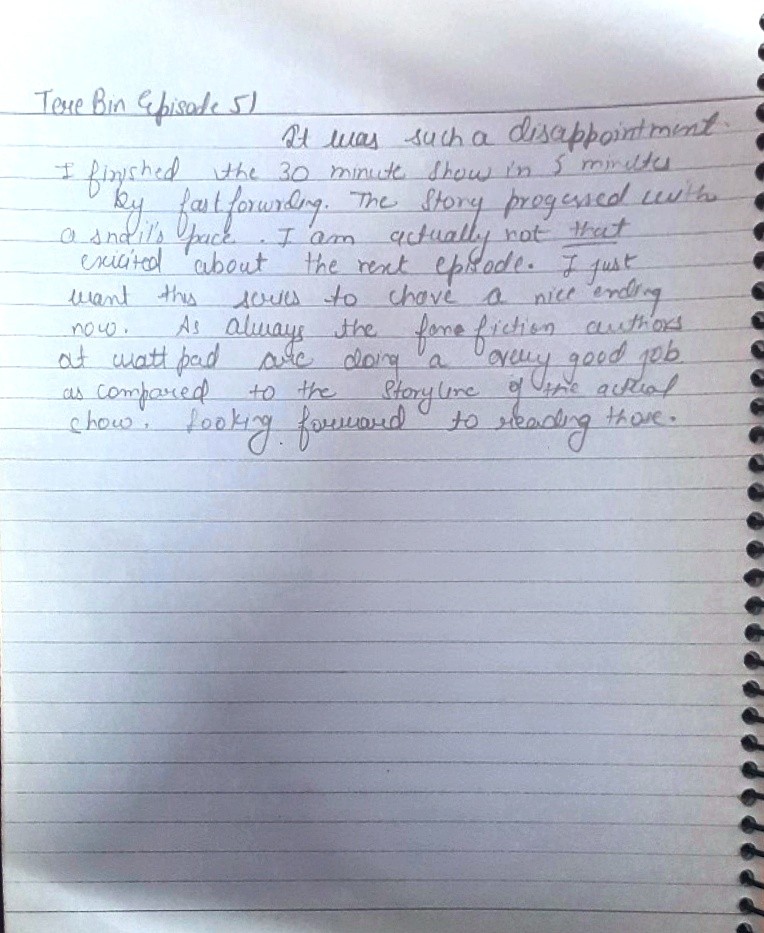 Tere Bin Episode 51
It was such a disappointment.
I finished the 30 minute show in 5 minutes
By fast forwrding. The Story progessed with
a snail's pace. I am actually not that
exicited about the next episode. I just
want this series to chave a nice ending
now. As always the fane fiction authors
at watt pad are doing a very good job
as compared to the Storyline of the actual
show. Looking forward to reading those.